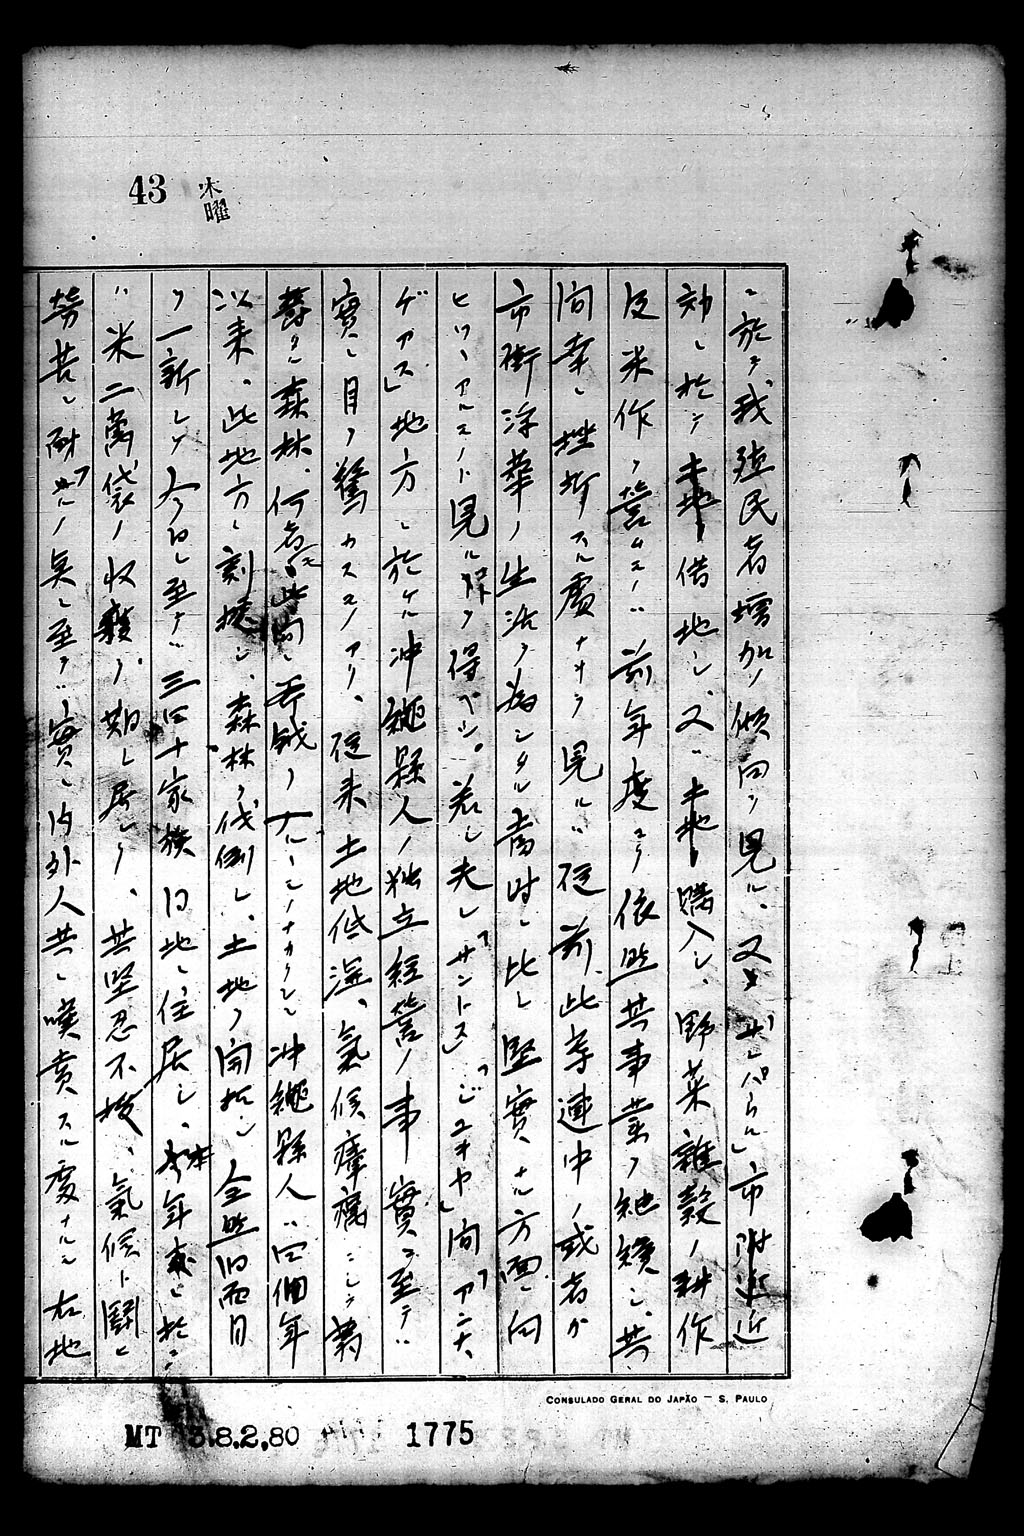 43
木曜
ニ於テ我殖民者増加ノ傾向ヲ見ル、又「サンパウロ」市附近
効ニ於テ土地借地シ、又ハ土地購入シ、野菜雑穀ノ耕作
及米作ヲ営ムモノハ前年度ヨリ依然其事業ヲ継続シ、共
間幸ニ挫折スル處ナキヲ見レハ従前此等連中ノ或者カ
市街浮華ノ生活ヲ為シタル当時ニ比シ堅實ナル方面ニ向
ヒツヽアルモノト見ル得ベシ。若シ夫レ「サントス」「ジユキヤ」間「アンナ、
ゲアス」地方ニ於ケル沖縄縣人ノ独立経営ノ事實ニ至テハ
實ニ目ヲ驚カスモノアリ、従来土地低湿、氣候瘴癘ニシテ
森林、何者モ此間ニ手ヲ沖縄縣人ハ四個年
以来、此地方ニ森林ヲ伐倒シ、土地ヲ開拓シ全然旧面目
ヲ一新シテ今日ニ至テハ三四十家族同地ニ住居シ、本年度ニ於テ
ハ米二萬袋ノ収穫ヲ期シ居レリ、其堅忍不抜、氣候ト闘ヒ
労苦ニ耐ユルノ点ニ至テハ實ニ内外人共ニ嘆賞スル處ナルモ右地
CONSULADO GERAL DO JAPÃO — S. PAULO
MT 3.8.2.80 1775